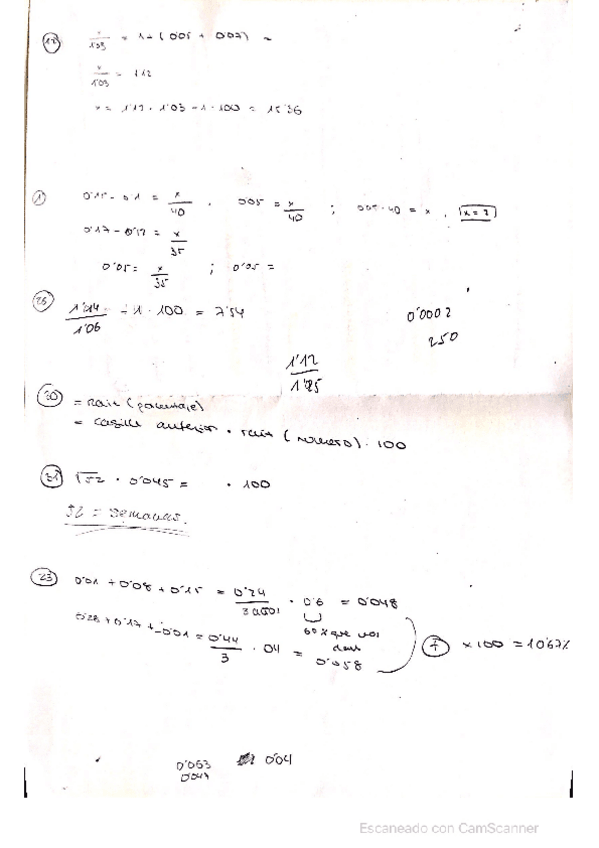 x/1'03 = 1+(0'05 + 0'07) =
x/1'03 = 1'12
x = 1'12 · 1'03 - 1 · 100 = 15'36
① 0'15 - 0'1 = x/40 . 0'05 = x/40 ; 0'05 · 40 = x , x = 2
0'17 - 0'12 = x/35
0'05 = x/35 ; 0'05 =
1'14/1'06 - 1 · 100 = 7'54
0'0002
250
1'12/1'25
㉚ = raiz (porcentaje)
= casilla anterior · raiz (numero) · 100
㉛ √52 · 0'045 = · 100
52 = semanas.
㉓ 0'01 + 0'08 + 0'15 = 0'24/3 · 0'6 = 0'048
60% que nos dan
0'28 + 0'17 + -0'01 = 0'44/3 · 04 = 0'058
+ x100 = 10'67%
0'063 0'04
0'047
Escaneado con CamScanner